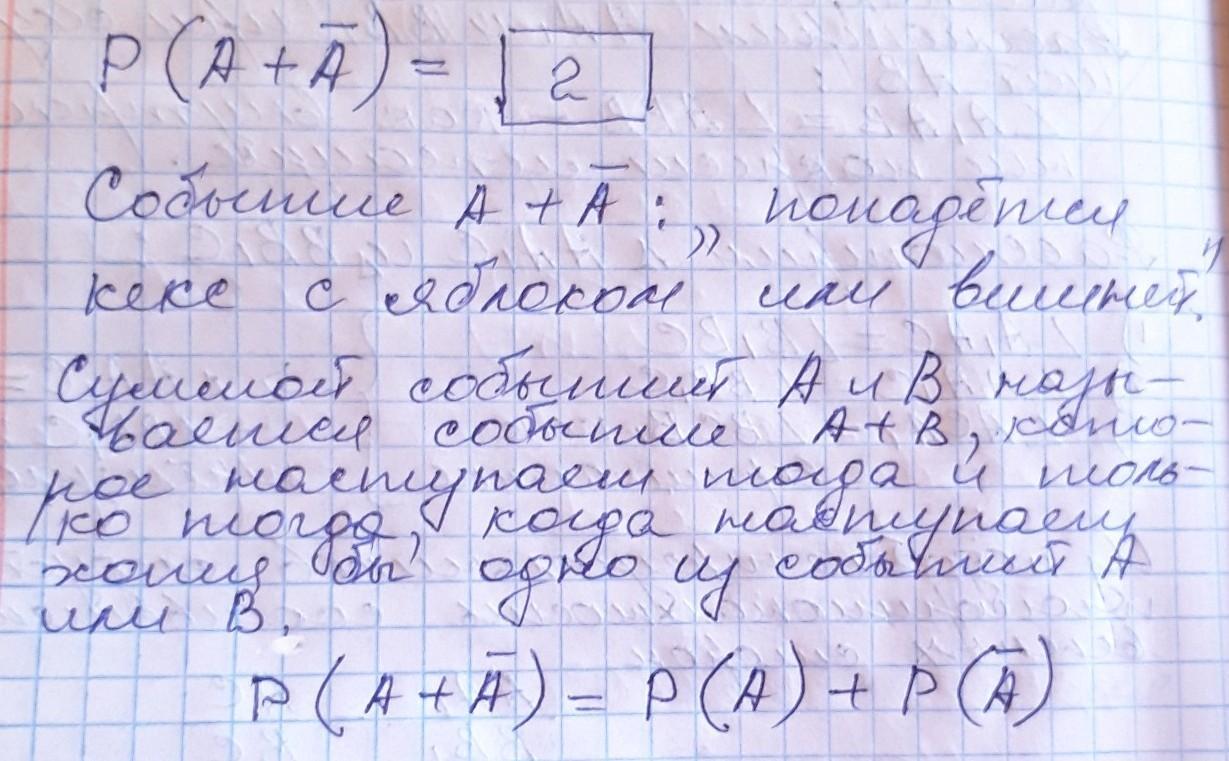 P(A + Ā) = 2
Событие A + Ā : „попадётся
кекс с яблоком или вишней".
Суммой событий A и B назы-
вается событие A + B, кото-
рое наступает тогда и толь-
ко тогда, когда наступает
хотя бы одно из событий A
или B.
P(A + Ā) = P(A) + P(Ā)